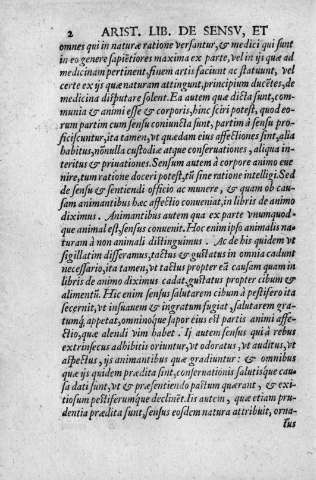 2 ARIST. LIB. DE SENSV, ET
omnes qui in naturæ ratione versantur, & medici qui sunt
in eo genere sapiētiores maxima ex parte, vel in ijs quæ ad
medicinam pertinent, finem artis faciunt ac statuunt, vel
certe ex ijs quæ naturam attingunt, principium ducētes, de
medicina disputare solent. Ea autem quæ dicta sunt, com-
munia & animi esse & corporis, hinc sciri potest, quod eo-
rum partim cum sensu coniuncta sunt, partim à sensu pro-
ficiscuntur, ita tamen, vt quædam eius affectiones sint, alia
habitus, nōnulla custodiæ atque conseruationes, aliqua in-
teritus & priuationes. Sensum autem à corpore animo eue
nire, tum ratione doceri potest, tū sine ratione intelligi. Sed
de sensu & sentiendi officio ac munere, & quam ob cau-
sam animantibus hæc affectio conueniat, in libris de animo
diximus. Animantibus autem qua ex parte vnumquod-
que animal est, sensus conuenit. Hoc enim ipso animalis na-
turam à non animali distinguimus. Ac de his quidem vt
sigillatim disseramus, tactus & gustatus in omnia cadunt
necessario, ita tamen, vt tactus propter eā causam quam in
libris de animo diximus cadat, gustatus propter cibum &
alimentū. Hic enim sensus salutarem cibum à pestifero ita
secernit, vt insuauem & ingratum fugiat, salutarem gra-
tumq; appetat, omninoque sapor eius est partis animi affe-
ctio, quæ alendi vim habet. Ij autem sensus qui à rebus
extrinsecus adhibitis oriuntur, vt odoratus, vt auditus, vt
aspectus, ijs animantibus quæ gradiuntur: & omnibus
quæ ijs quidem prædita sint, conseruationis salutisque cau-
sa dati sunt, vt & præsentiendo pastum quærant, & exi-
tiosum pestiferumque declinēt. Iis autem, quæ etiam pru-
dentia prædita sunt, sensus eosdem natura attribuit, orna-
tus